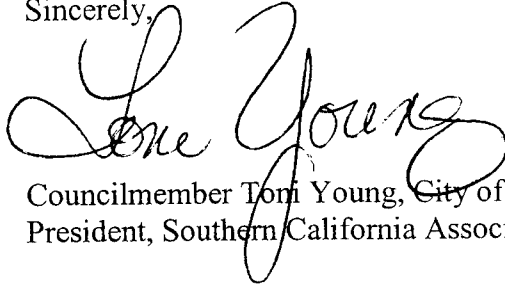 Sincerely,
Toni Young
Councilmember Toni Young, City of
President, Southern California Assoc